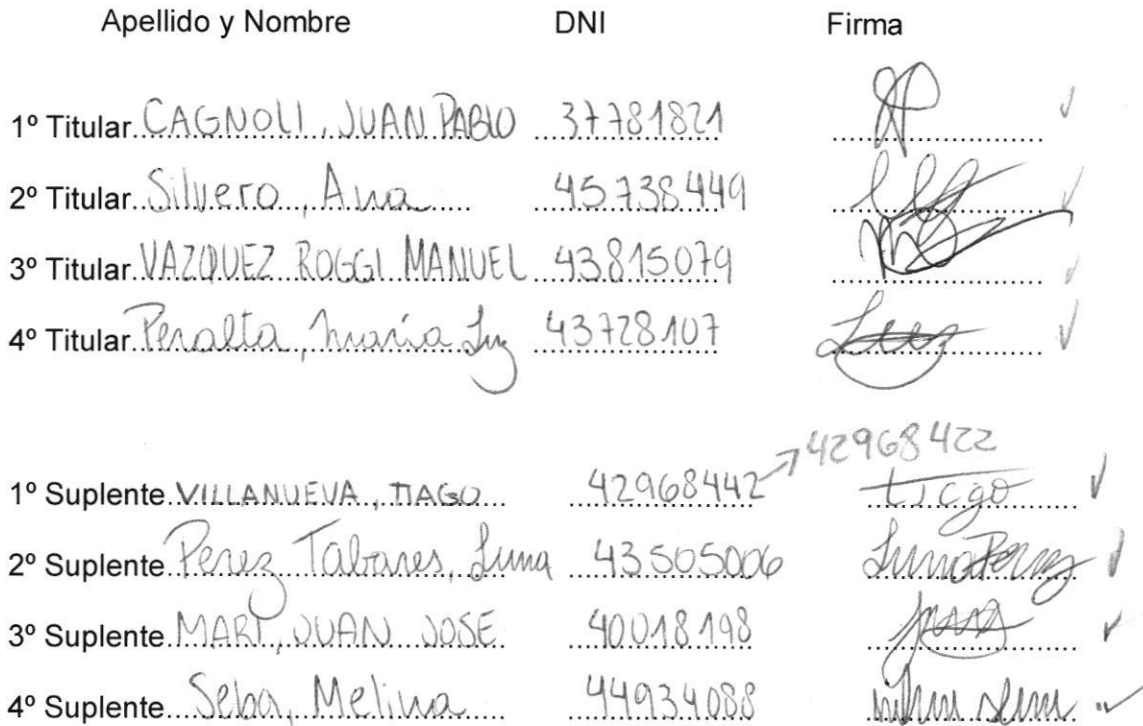 Apellido y Nombre DNI Firma
1º Titular CAGNOLI, JUAN PABLO 37781821
2º Titular Silvero, Ana 45738449
3º Titular VAZQUEZ ROGGI MANUEL 43815079
4º Titular Peralta, María Luz 43728107 Luz
42968422
1º Suplente VILLANUEVA, TIAGO 42968442 tiago
2º Suplente Perez Tabares, Luna 43505006 Luna Perez
3º Suplente MARI, JUAN JOSE 40018198
4º Suplente Seba, Melina 44934088